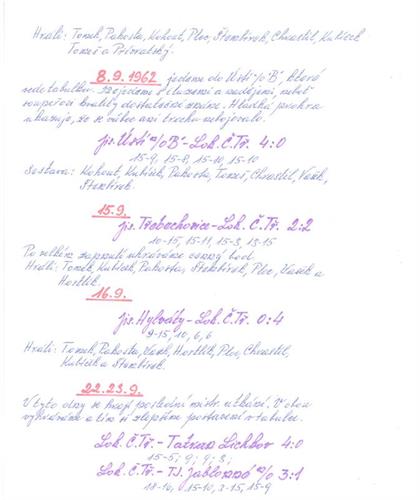 Hráli: Tomek, Pakosta, Kohout, Ploc, Štembírek, Chvastil, Kubíček
Tomeš a Přívratský.
8.9.1962 jedeme do Ústí n/O "B", které
vede tabulku. Dojedeme s tužení a nadějemi, neboť
soupeřovi kvality dostatečně známe. Hladká prohra
ukazuje, že se vůbec ani trochu nebojovalo.
js. Ústí n/O "B" - Lok. Č.Tř. 4:0
15-9, 15-8, 15-10, 15-10
Sestava: Kohout, Kubíček, Pakosta, Tomeš, Chvastil, Vašek,
Štembírek.
15.9.
js. Třebechovice - Lok. Č.Tř. 2:2
10-15, 15-11, 15-3, 13-15
Po velkém zápolení uhráváme cenný bod.
Hráli: Tomek, Kubíček, Pakosta, Štembírek, Ploc, Vašek a
Hostlík.
16.9.
js. Hylváty - Lok. Č.Tř. 0:4
9-15, 10, 6, 6
Hráli: Tomek, Pakosta, Vašek, Hostlík, Ploc, Chvastil,
Kubíček a Štembírek.
22.23.9.
V tyto dny se hrají poslední mistr. utkání. V obou
vyhráváme a tím si zlepšíme postavení v tabulce.
Lok. Č.Tř. - Tatran Lichkov 4:0
15-5; 9; 9; 3;
Lok. Č.Tř. - TJ. Jablonné n/O 3:1
18-16, 15-10, 3-15, 15-9